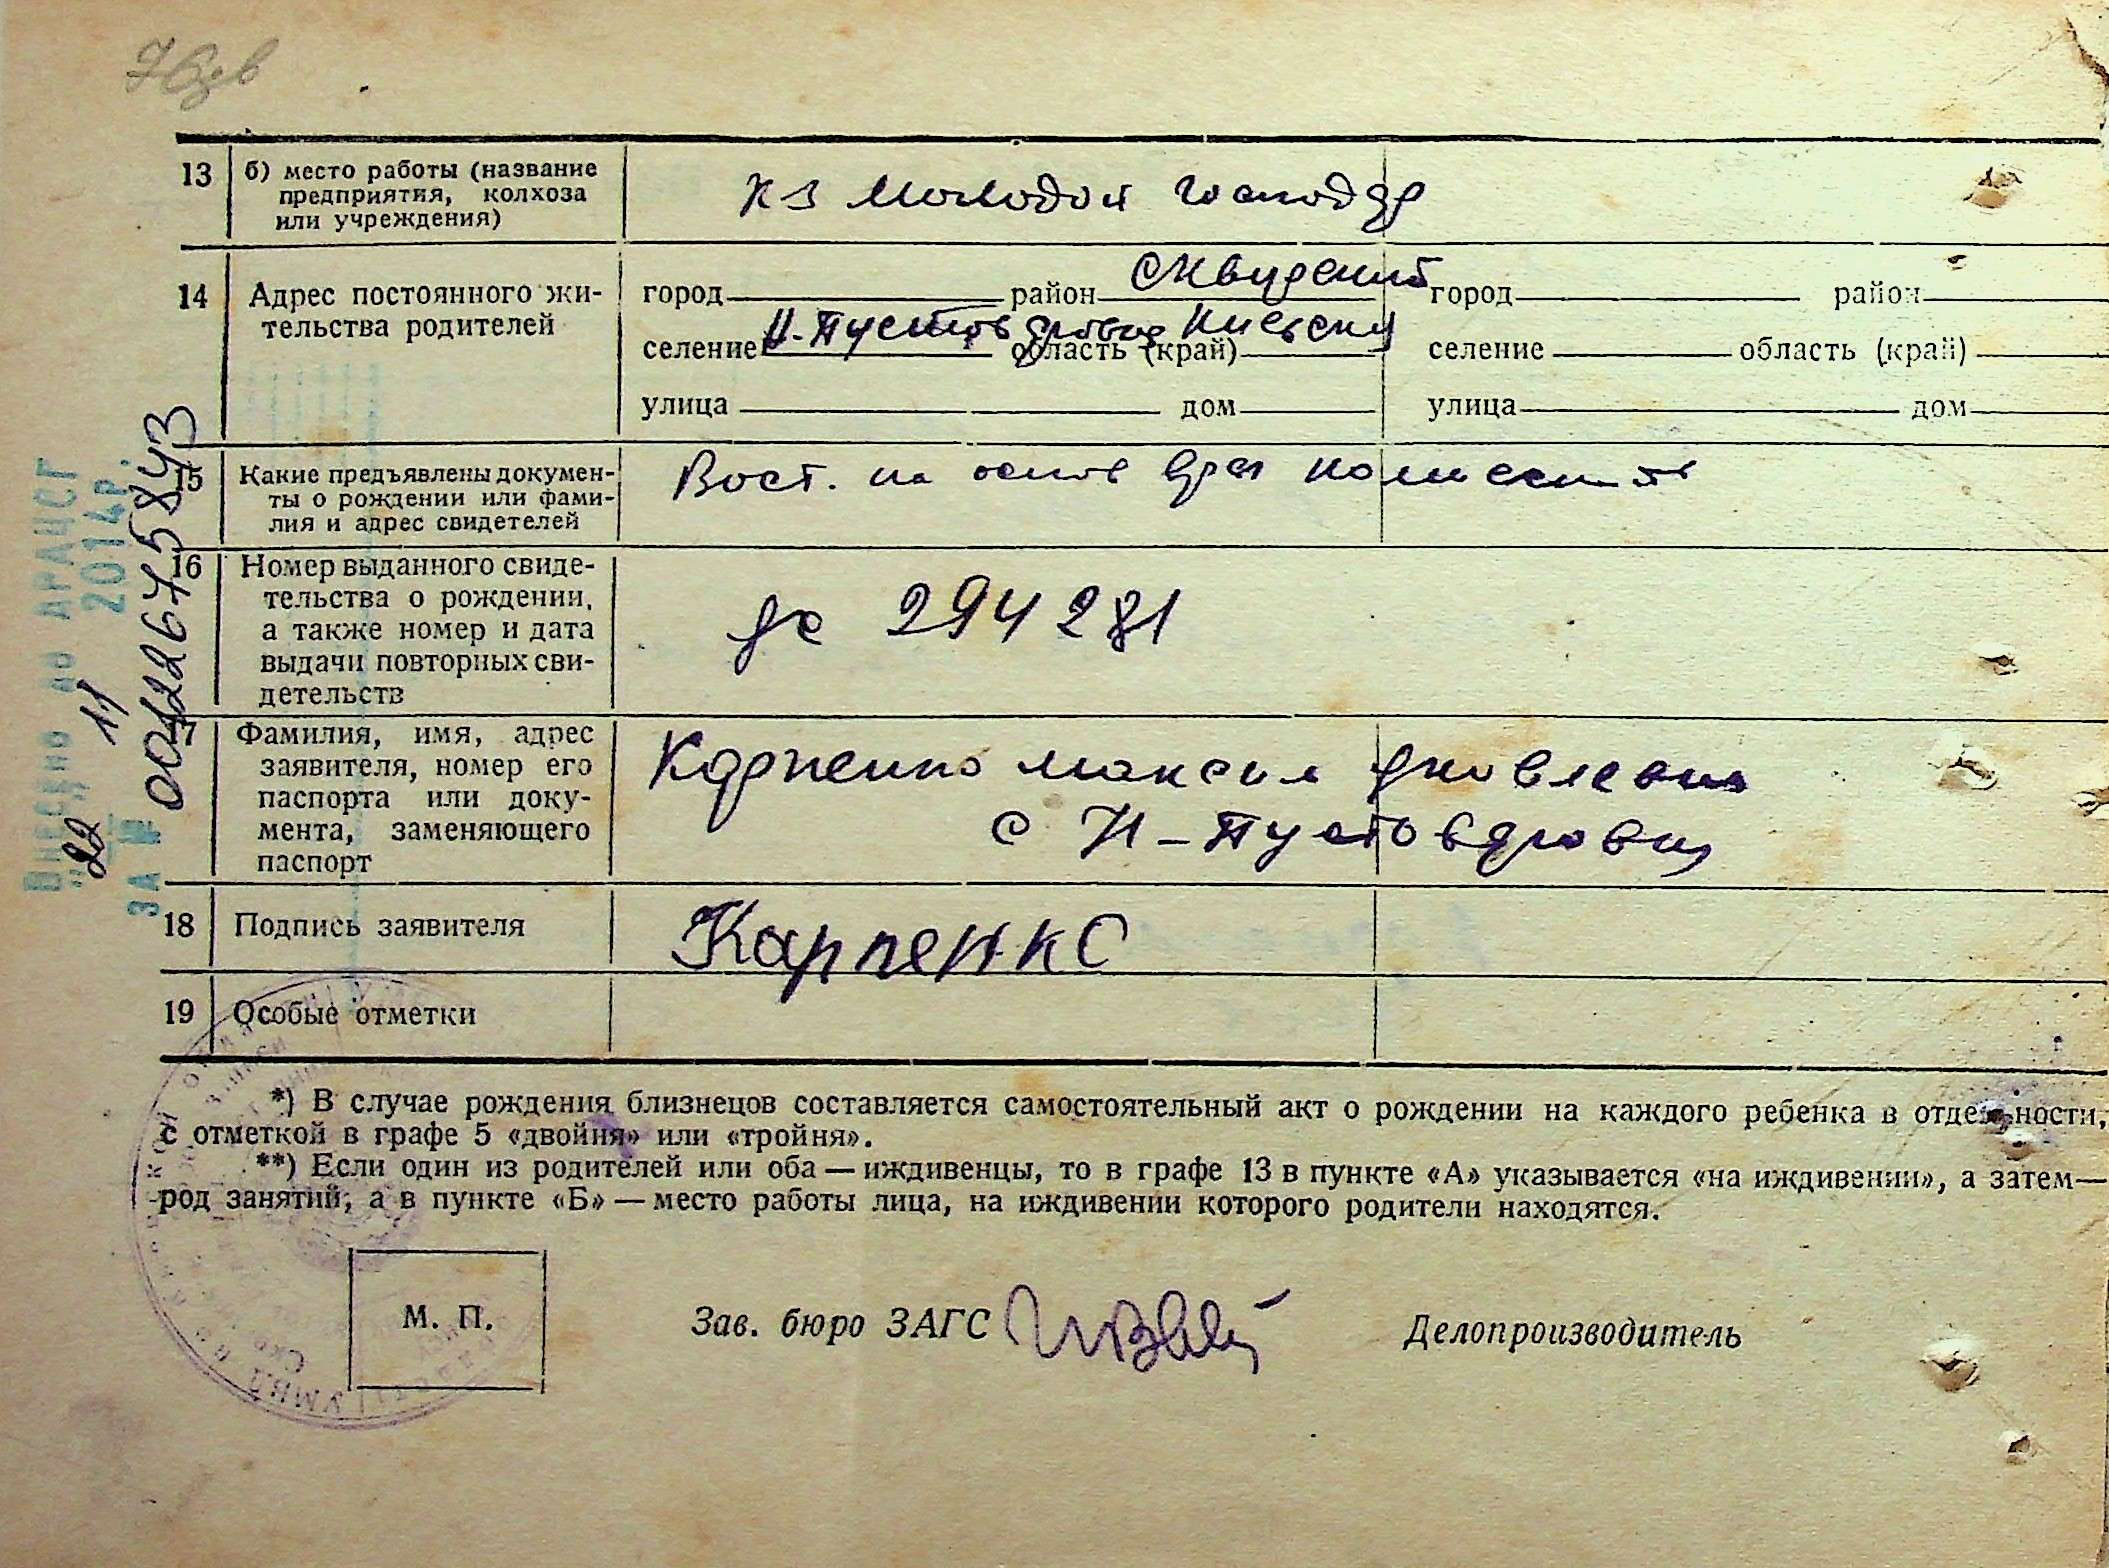 13 б) место работы (название
предприятия, колхоза
или учреждения)
кз молодой господар
14 Адрес постоянного жи-
тельства родителей
город район Сквирский город район
селение Н-Пустоваровка область (край) Киевск селение область (край)
улица дом улица дом
15 Какие предъявлены докумен-
ты о рождении или фами-
лия и адрес свидетелей
Вост. на основ врач комиссии
16 Номер выданного свиде-
тельства о рождении,
а также номер и дата
выдачи повторных сви-
детельств
294281
17 Фамилия, имя, адрес
заявителя, номер его
паспорта или доку-
мента, заменяющего
паспорт
Карпенко максим яковлевич
с Н-Пустоваровки
18 Подпись заявителя
Карпенко
19 Особые отметки
Внесено до ДРАЦСГ
"22" 11 2014р.
ЗА № 00122675843
*) В случае рождения близнецов составляется самостоятельный акт о рождении на каждого ребенка в отдельности,
с отметкой в графе 5 «двойня» или «тройня».
**) Если один из родителей или оба — иждивенцы, то в графе 13 в пункте «А» указывается «на иждивении», а затем—
род занятий, а в пункте «Б» — место работы лица, на иждивении которого родители находятся.
М. П.
Зав. бюро ЗАГС
Делопроизводитель